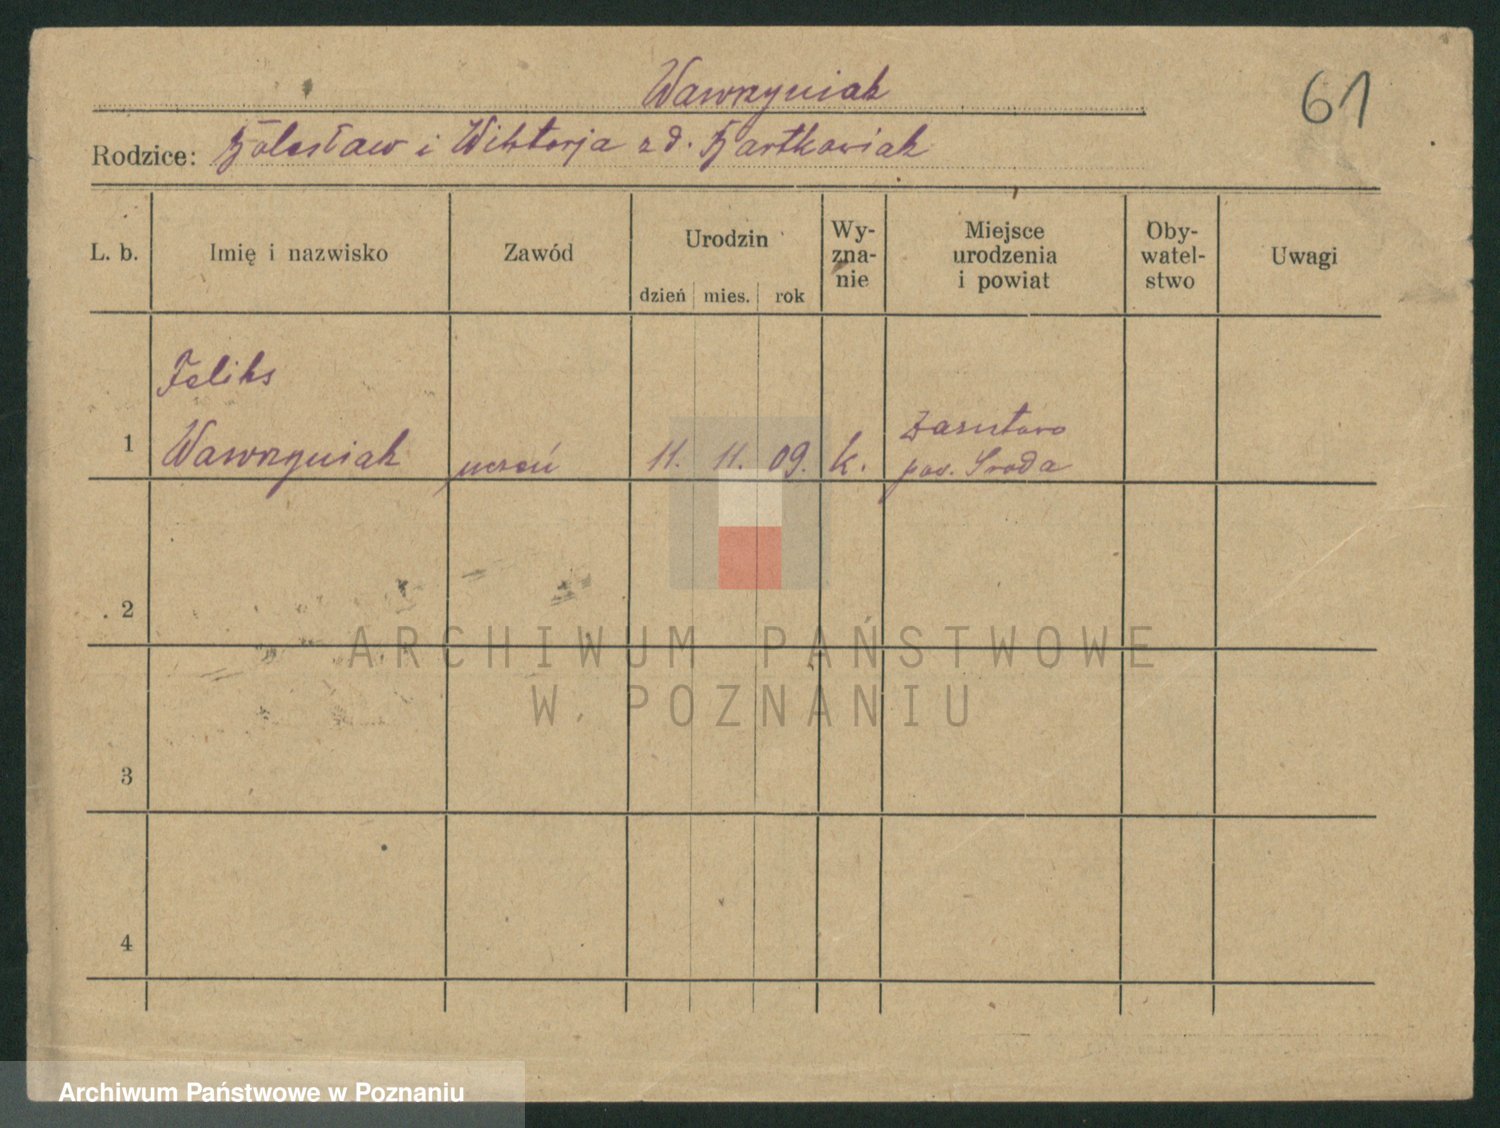 Wawrzyniak
61
Rodzice: Bolesław i Wiktorja z d. Bartkowiak
L. b.
Imię i nazwisko
Zawód
Urodzin
dzień mies. rok
Wy-
zna-
nie
Miejsce
urodzenia
i powiat
Oby-
watel-
stwo
Uwagi
Feliks
1 Wawrzyniak uczeń 11. 11. 09. k.
Zasutowo
pow. Środa
2
3
4
ARCHIWUM PAŃSTWOWE
W POZNANIU
Archiwum Państwowe w Poznaniu